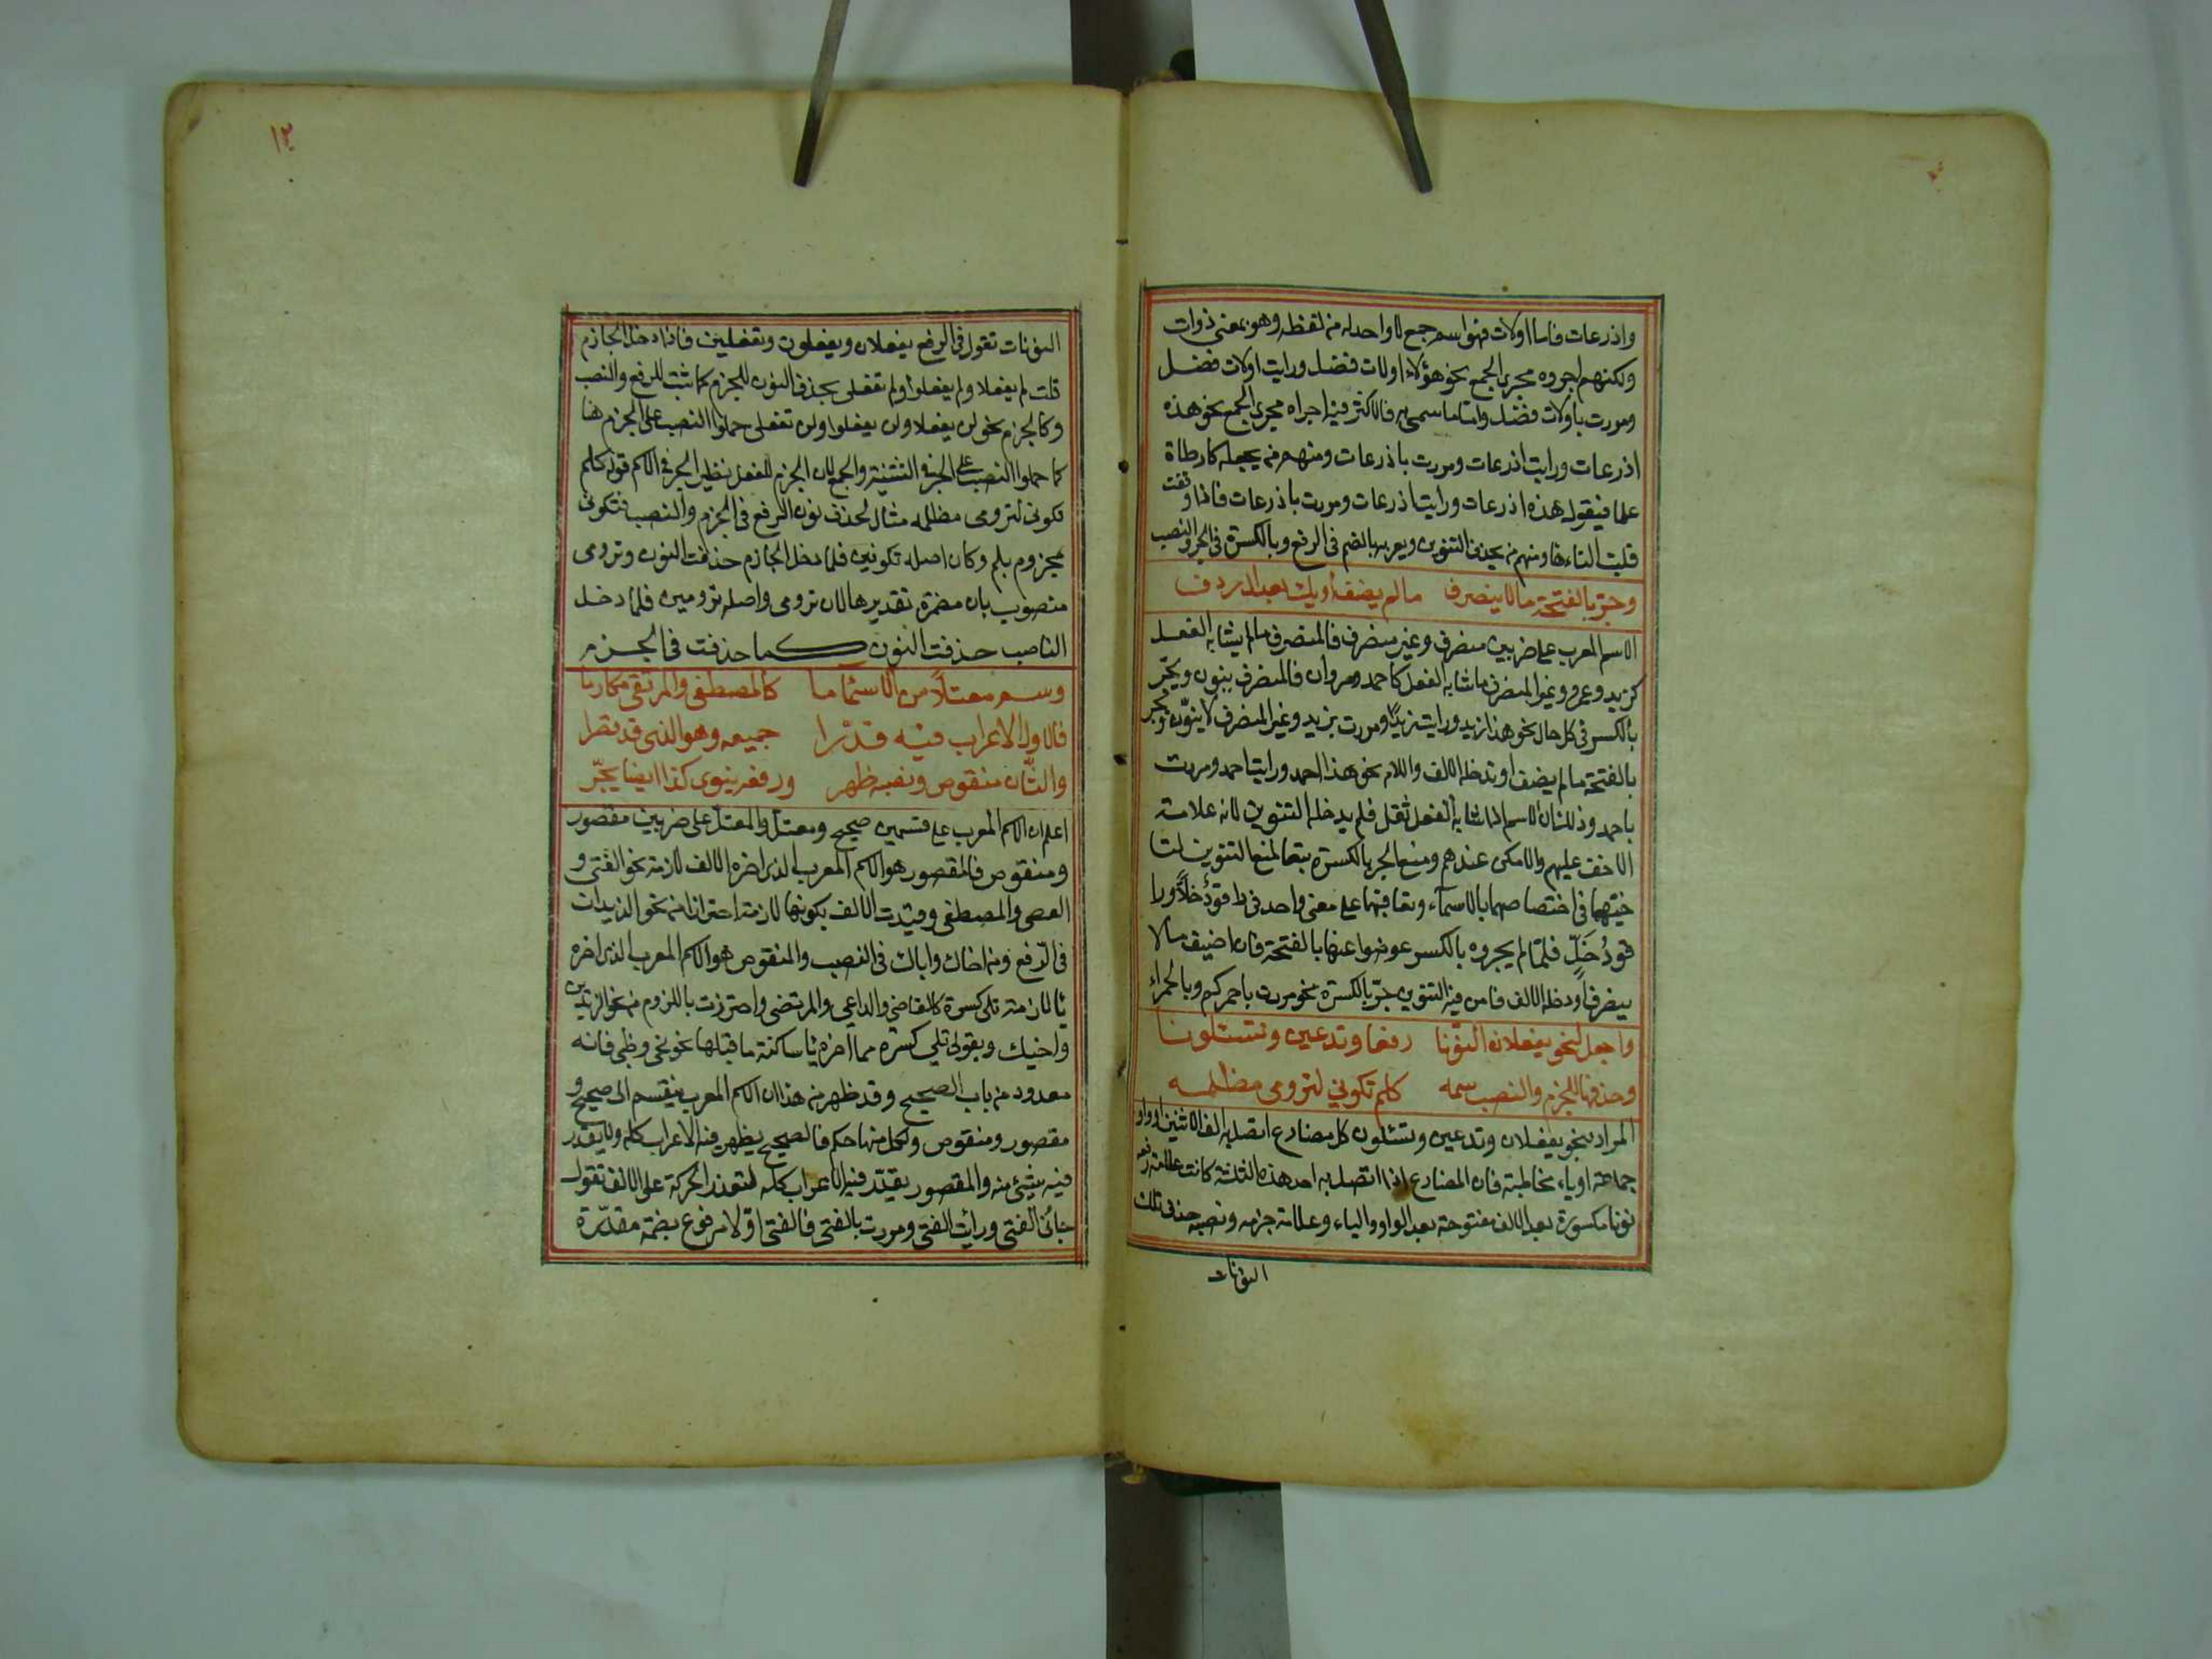 واذرعات فاما اولات فهو اسم جمع لا واحد له من لفظه وهو بمعنى ذوات
ولكنهم اجروه مجرى الجمع نحو هؤلاء اولات فضل ورايت اولات فضل
ومررت بأولات فضل واما ما سمى به فالاكثر فيه اجراه مجرى الجمع نحو هذه
اذرعات ورايت اذرعات ومررت باذرعات ومنهم من يجعله كارطاة
علما فيقول هذه اذرعات ورايت اذرعات ومررت باذرعات فاذا وقفت
قلبت التاء ها ومنهم من يحذف التنوين ويعربه بالضم فى الرفع وبالكسرة فى الجر والنصب
وجر بالفتحة ما لا ينصرف ما لم يضف او يك بعد ال ردف
الاسم المعرب على ضربين منصرف وغير منصرف فالمنصرف ما لم يشابه الفعل
كزيد وعمرو وغير المنصرف ما شابه الفعل كاحمد ومروان فالمنصرف ينون ويجر
بالكسر فى كل حال نحو هذا زيد ورايت زيدًا ومررت بزيد وغير المنصرف لا ينوّن ويجر
بالفتحة ما لم يضف او تدخله الالف واللام نحو هذا احمد ورايت احمد ومررت
باحمد وذلك ان الاسم اذا شابه الفعل ثقل فلم يدخله التنوين لانه علامة
الاخف عليهم والامكن عندهم ومنع الجر بالكسرة تبعا لمنع التنوين لتا
خيهما فى اختصاصهما بالاسماء وتعاقبهما على معنى واحد فى راقودٌ خلًّا ورا
قودُ خَلٍّ فلما لم يجروه بالكسر عوضوا عنها بالفتحة فان اضيف ما لا
ينصرف او دخله الالف فامن فيه التنوين جرّ بالكسرة نحو مررت باحمركم وبالحمراء
واجعل لنحو يفعلان النّونا رفعا وتدعين وتسئلونا
وحذفها للجزم والنصب سمه كلم تكوني لترومى مظلمه
المراد بنحو يفعلان وتدعين وتسئلون كل مضارع اتصل به الف الاثنين او واو
جماعة او ياء مخاطبة فان المضارع اذا اتصل به احد هذه الثلثة كانت علامة رفعه
نونا مكسورة بعد الالف مفتوحة بعد الواو والياء وعلامة جزمه ونصبه حذف تلك
النونات
١٢
النونات تقول فى الرفع يفعلان ويفعلون وتفعلين فاذا دخل الجازم
قلت لم يفعلا ولم يفعلوا ولم تفعلى بحذف النون للجزم كما ثبت للرفع والنصب
وكالجزم نحو لن يفعلا ولن يفعلوا ولن تفعلى حملوا النصب على الجزم هنا
كما حملوا النصب على الجر فى التثنية والجمع لان الجزم للفعل نظير الجر فى الاسم قوله كلم
تكونى لترومى مظلمه مثال لحذف نون الرفع فى الجزم والنصب فتكونى
مجزوم بلم وكان اصله تكونين فلما دخل الجازم حذفت النون وترومى
منصوب بان مضمرة تقديرها لان ترومى واصله ترومين فلما دخل
الناصب حذفت النون كما حذفت فى الجزم
وسم معتلًا من الاسماء ما كالمصطفى والمرتقى مكارما
فالاول الاعراب فيه قدّرا جميعه وهو الذى قد قصرا
والثّان منقوص ونصبه ظهر ورفعه ينوى كذا ايضا يجّر
اعلم ان الاسم المعرب على قسمين صحيح ومعتل والمعتل على ضربين مقصور
ومنقوص فالمقصور هو الاسم المعرب الذى اخره الف لازمة نحو الفتى و
العصى والمصطفى وقيدت الالف بكونها لازمة احترازا من نحو الزيدان
فى الرّفع ومن اخاك واباك فى النصب والمنقوص هو الاسم المعرب الذى اخره
يا لازمة تلى كسرة كالقاضى والداعى والمرتضى واحترزت باللزوم من نحو الزيدين
واخيك وبقولى تلي كسرة مما اخره يا ساكنة ما قبلها نحو نحى وظبى فانه
معدود من باب الصحيح وقد ظهر من هذا ان الاسم المعرب ينقسم الى صحيح و
مقصور ومنقوص ولكل منها حكم فالصحيح يظهر فيه الاعراب كله ولا يقدر
فيه شيئ منه والمقصور يقدّر فيه الاعراب كله لتعذر الحركة على الالف تقول
جائنى الفتى ورائت الفتى ومررت بالفتى فالفتى اولا مرفوع بضمة مقدّرة